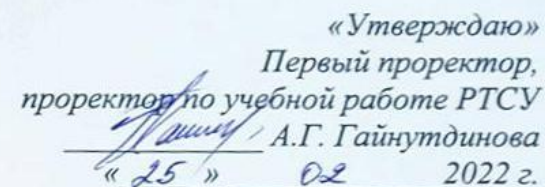 «Утверждаю»
Первый проректор,
проректор по учебной работе РТСУ
А.Г. Гайнутдинова
« 25 » 02 2022 г.